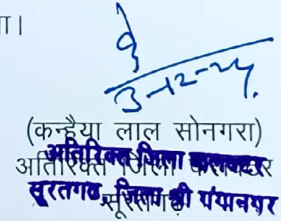 ा।
3-12-24.
(कन्हैया लाल सोनगरा)
अतिरिक्त जिला कलक्टर
अतिरिक्त जिला कलक्टर
सूरतगढ, जिला श्री गंगानगर
सूरतगढ़